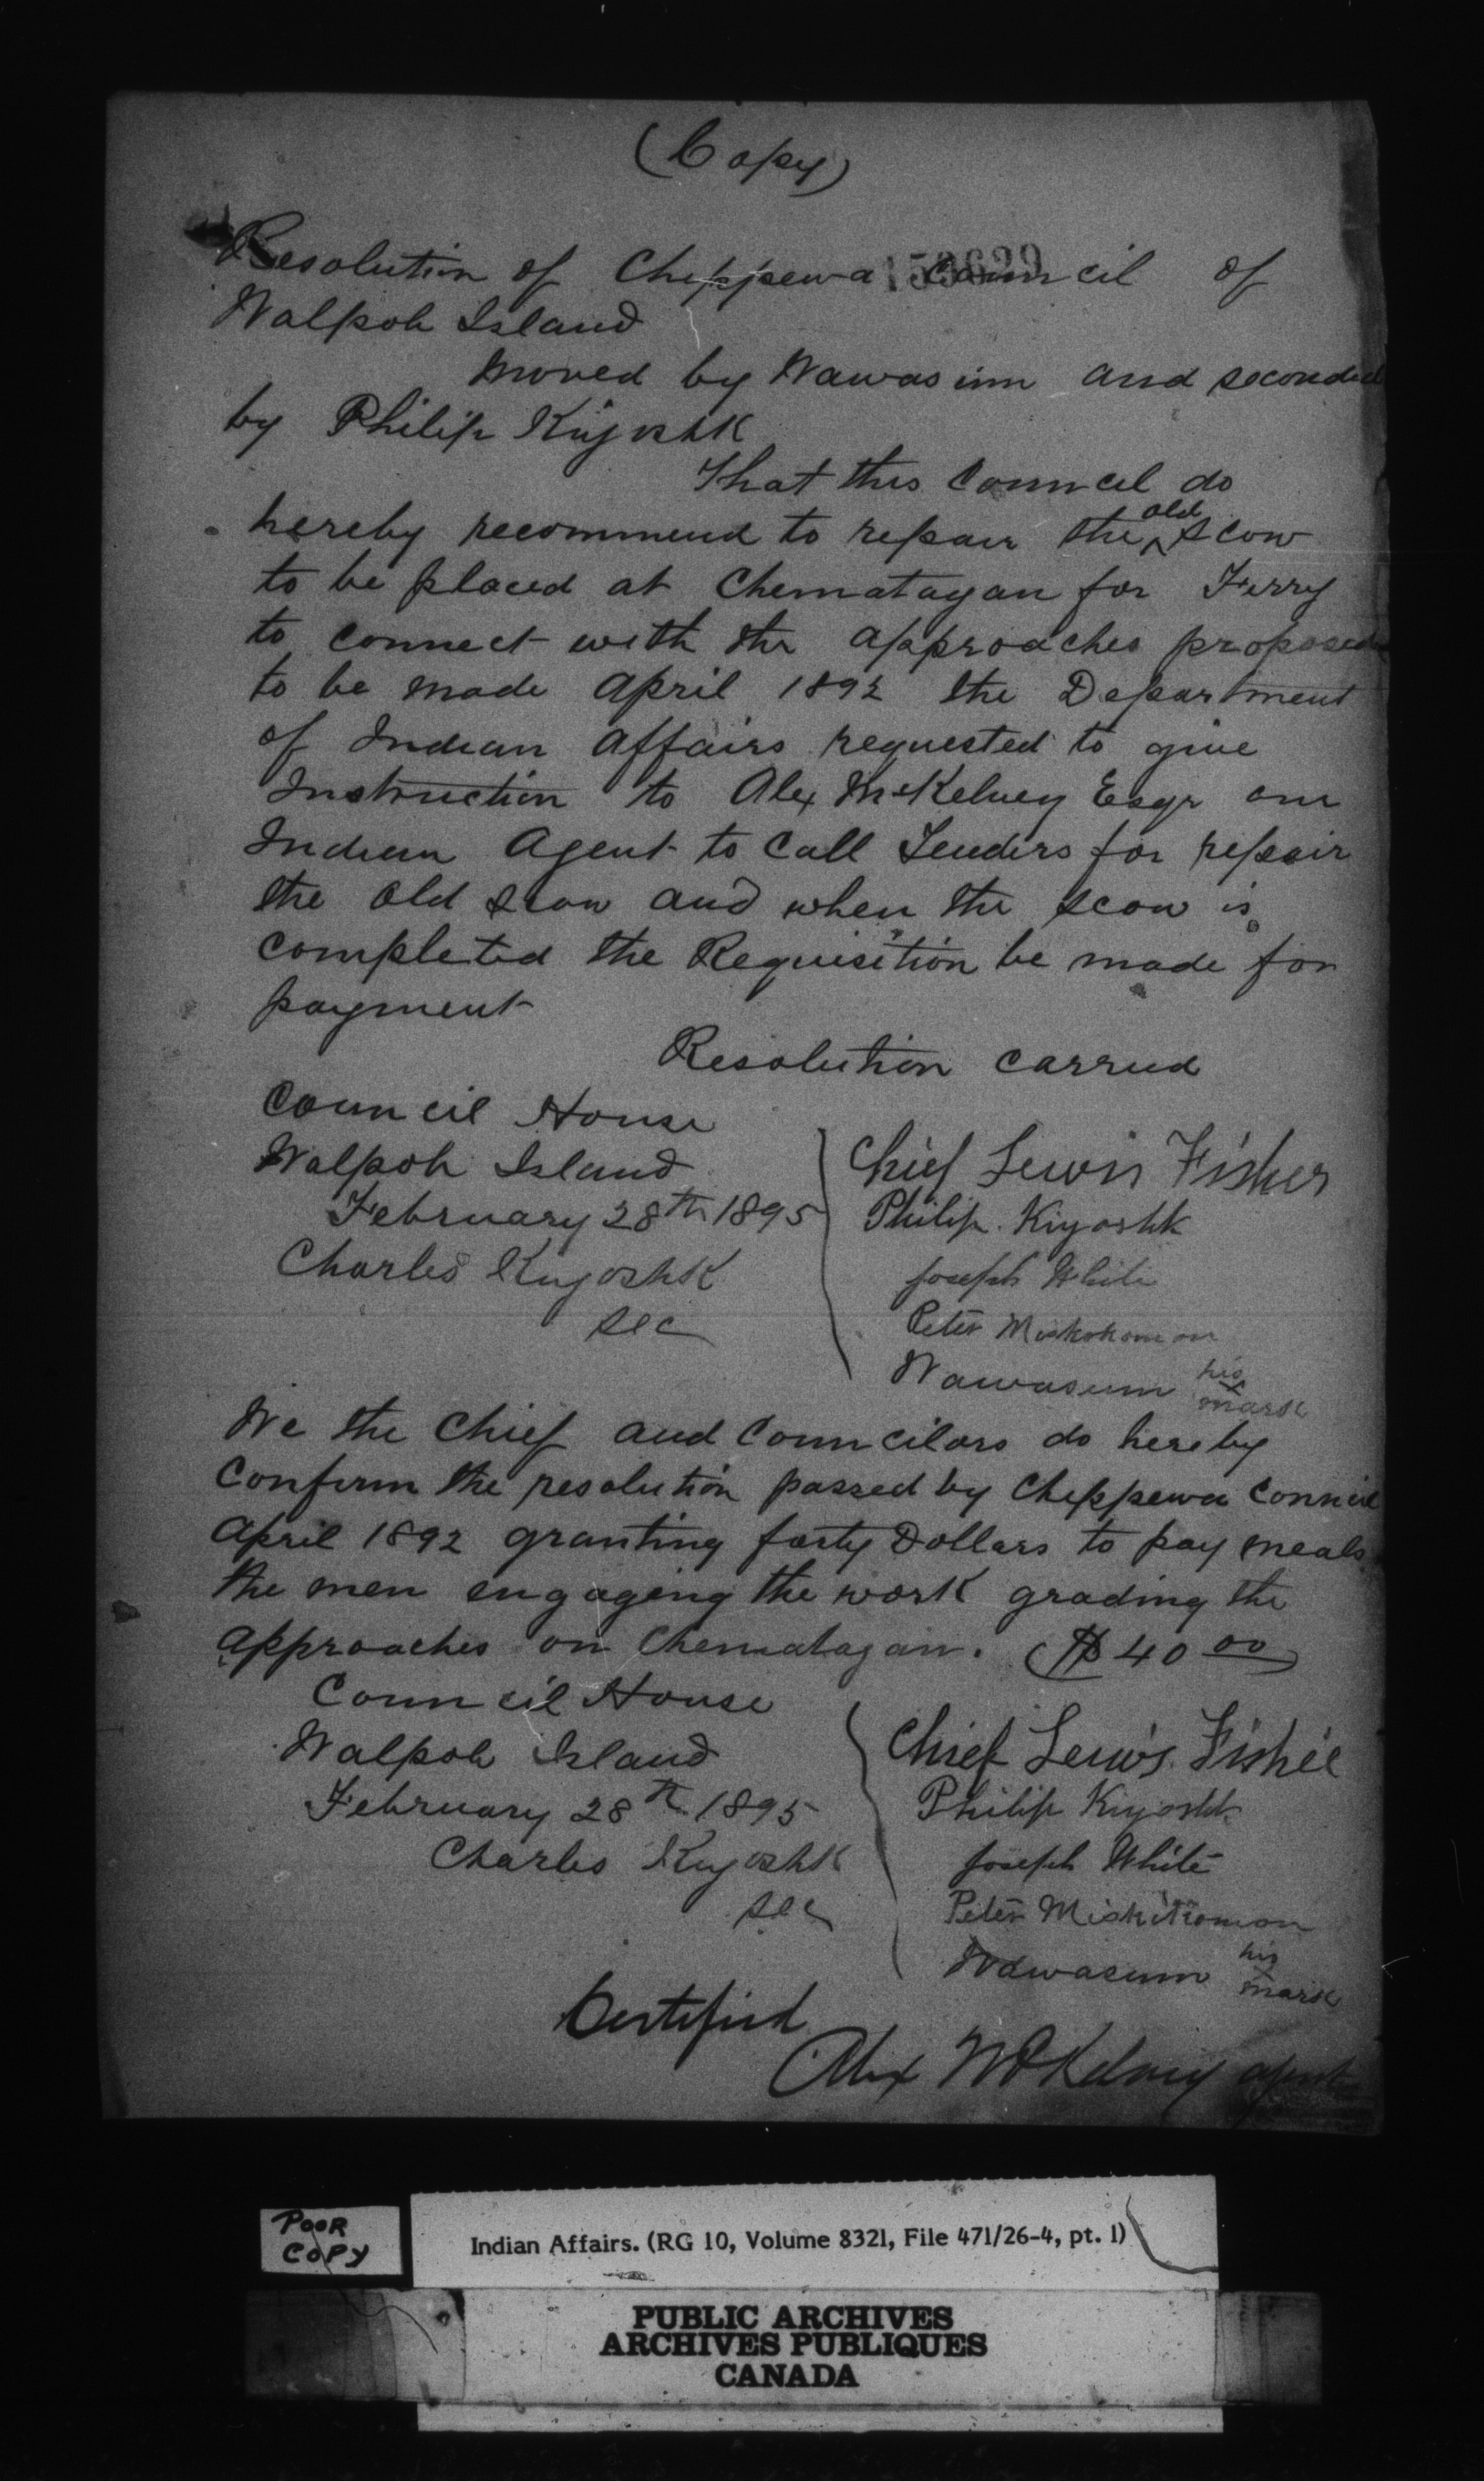 (Copy)
153629
Resolution of Chippewa Council of
Walpole Island
Moved by Nawasum and seconded
by Philip Kiyoshk
That this Council do
hereby recommend to repair the old scow
to be placed at Chematagan for Ferry
to connect with the approaches proposed
to be made April 1892 the Department
of Indian Affairs requested to give
Instruction to Alex McKelvey Esqr our
Indian Agent to Call Tenders for repair
the old scow and when the scow is
completed the Requisition be made for
payment
Resolution carried
Council House
Walpole Island
February 28th 1895
Charles Kiyoshk
Sec
Chief Lewis Fisher
Philip Kiyoshk
Joseph White
Peter Miskokomon
Nawasum his x mark
We the Chief and Councilors do hereby
Confirm the resolution passed by Chippewa Council
April 1892 granting forty Dollars to pay meals
the men engageing the work grading the
approaches on Chematagan. ($40 00)
Council House
Walpole Island
February 28th 1895
Charles Kiyoshk
Sec
Chief Lewis Fisher
Philip Kiyoshk
Joseph White
Peter Miskokomon
Nawasum his x mark
Certified
Alex McKelvey agent
POOR
COPY
Indian Affairs. (RG 10, Volume 8321, File 471/26-4, pt. 1)
PUBLIC ARCHIVES
ARCHIVES PUBLIQUES
CANADA